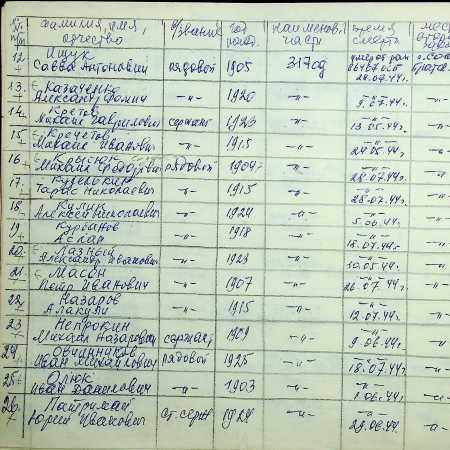 № фамилия, имя, звание год наименов. время мес
п/п отчество рожд. части смерти
12. Ищук умер от ран
Савва Антонович рядовой 1905 317 сд
28.07.44г.
13. Казаченко
Александр Фомич -"- 1920 -"- 9.07.44г. -"-
14. Костов
Михаил Гаврилович сержант 1923 -"- 13.05.44г. -"-
15. Кочетов
Михаил Иванович -"- 1915 -"- 24.05.44г. -"-
16. Крысюк
Михаил рядовой 1904 -"- 28.07.44г. -"-
17.
Тарас Николаевич -"- 1915 -"- 28.07.44г. -"-
18. Кулик
Алексей Николаевич -"- 1924 -"- 5.06.44г. -"-
19. Курбанов
Аслан -"- 1918 -"- 18.07.44г. -"-
20. Лазный
Александр Иванович -"- 1923 -"- 10.05.44г. -"-
21. Масон
Петр Иванович -"- 1907 -"- 26.07.44г. -"-
22. Назаров
Алакули -"- 1915 -"- 12.07.44г. -"-
23. Непрокин
Михаил Назарович сержант 1909 -"- 9.06.44г. -"-
24. Овчинников
Иван Михайлович рядовой 1925 -"- 18.07.44г. -"-
25. Олюк
Иван Данилович -"- 1903 -"- 1.06.44г. -"-
26. Патримай
Юрий Иванович ст. серж. 1924 -"- 29.06.44г. -"-